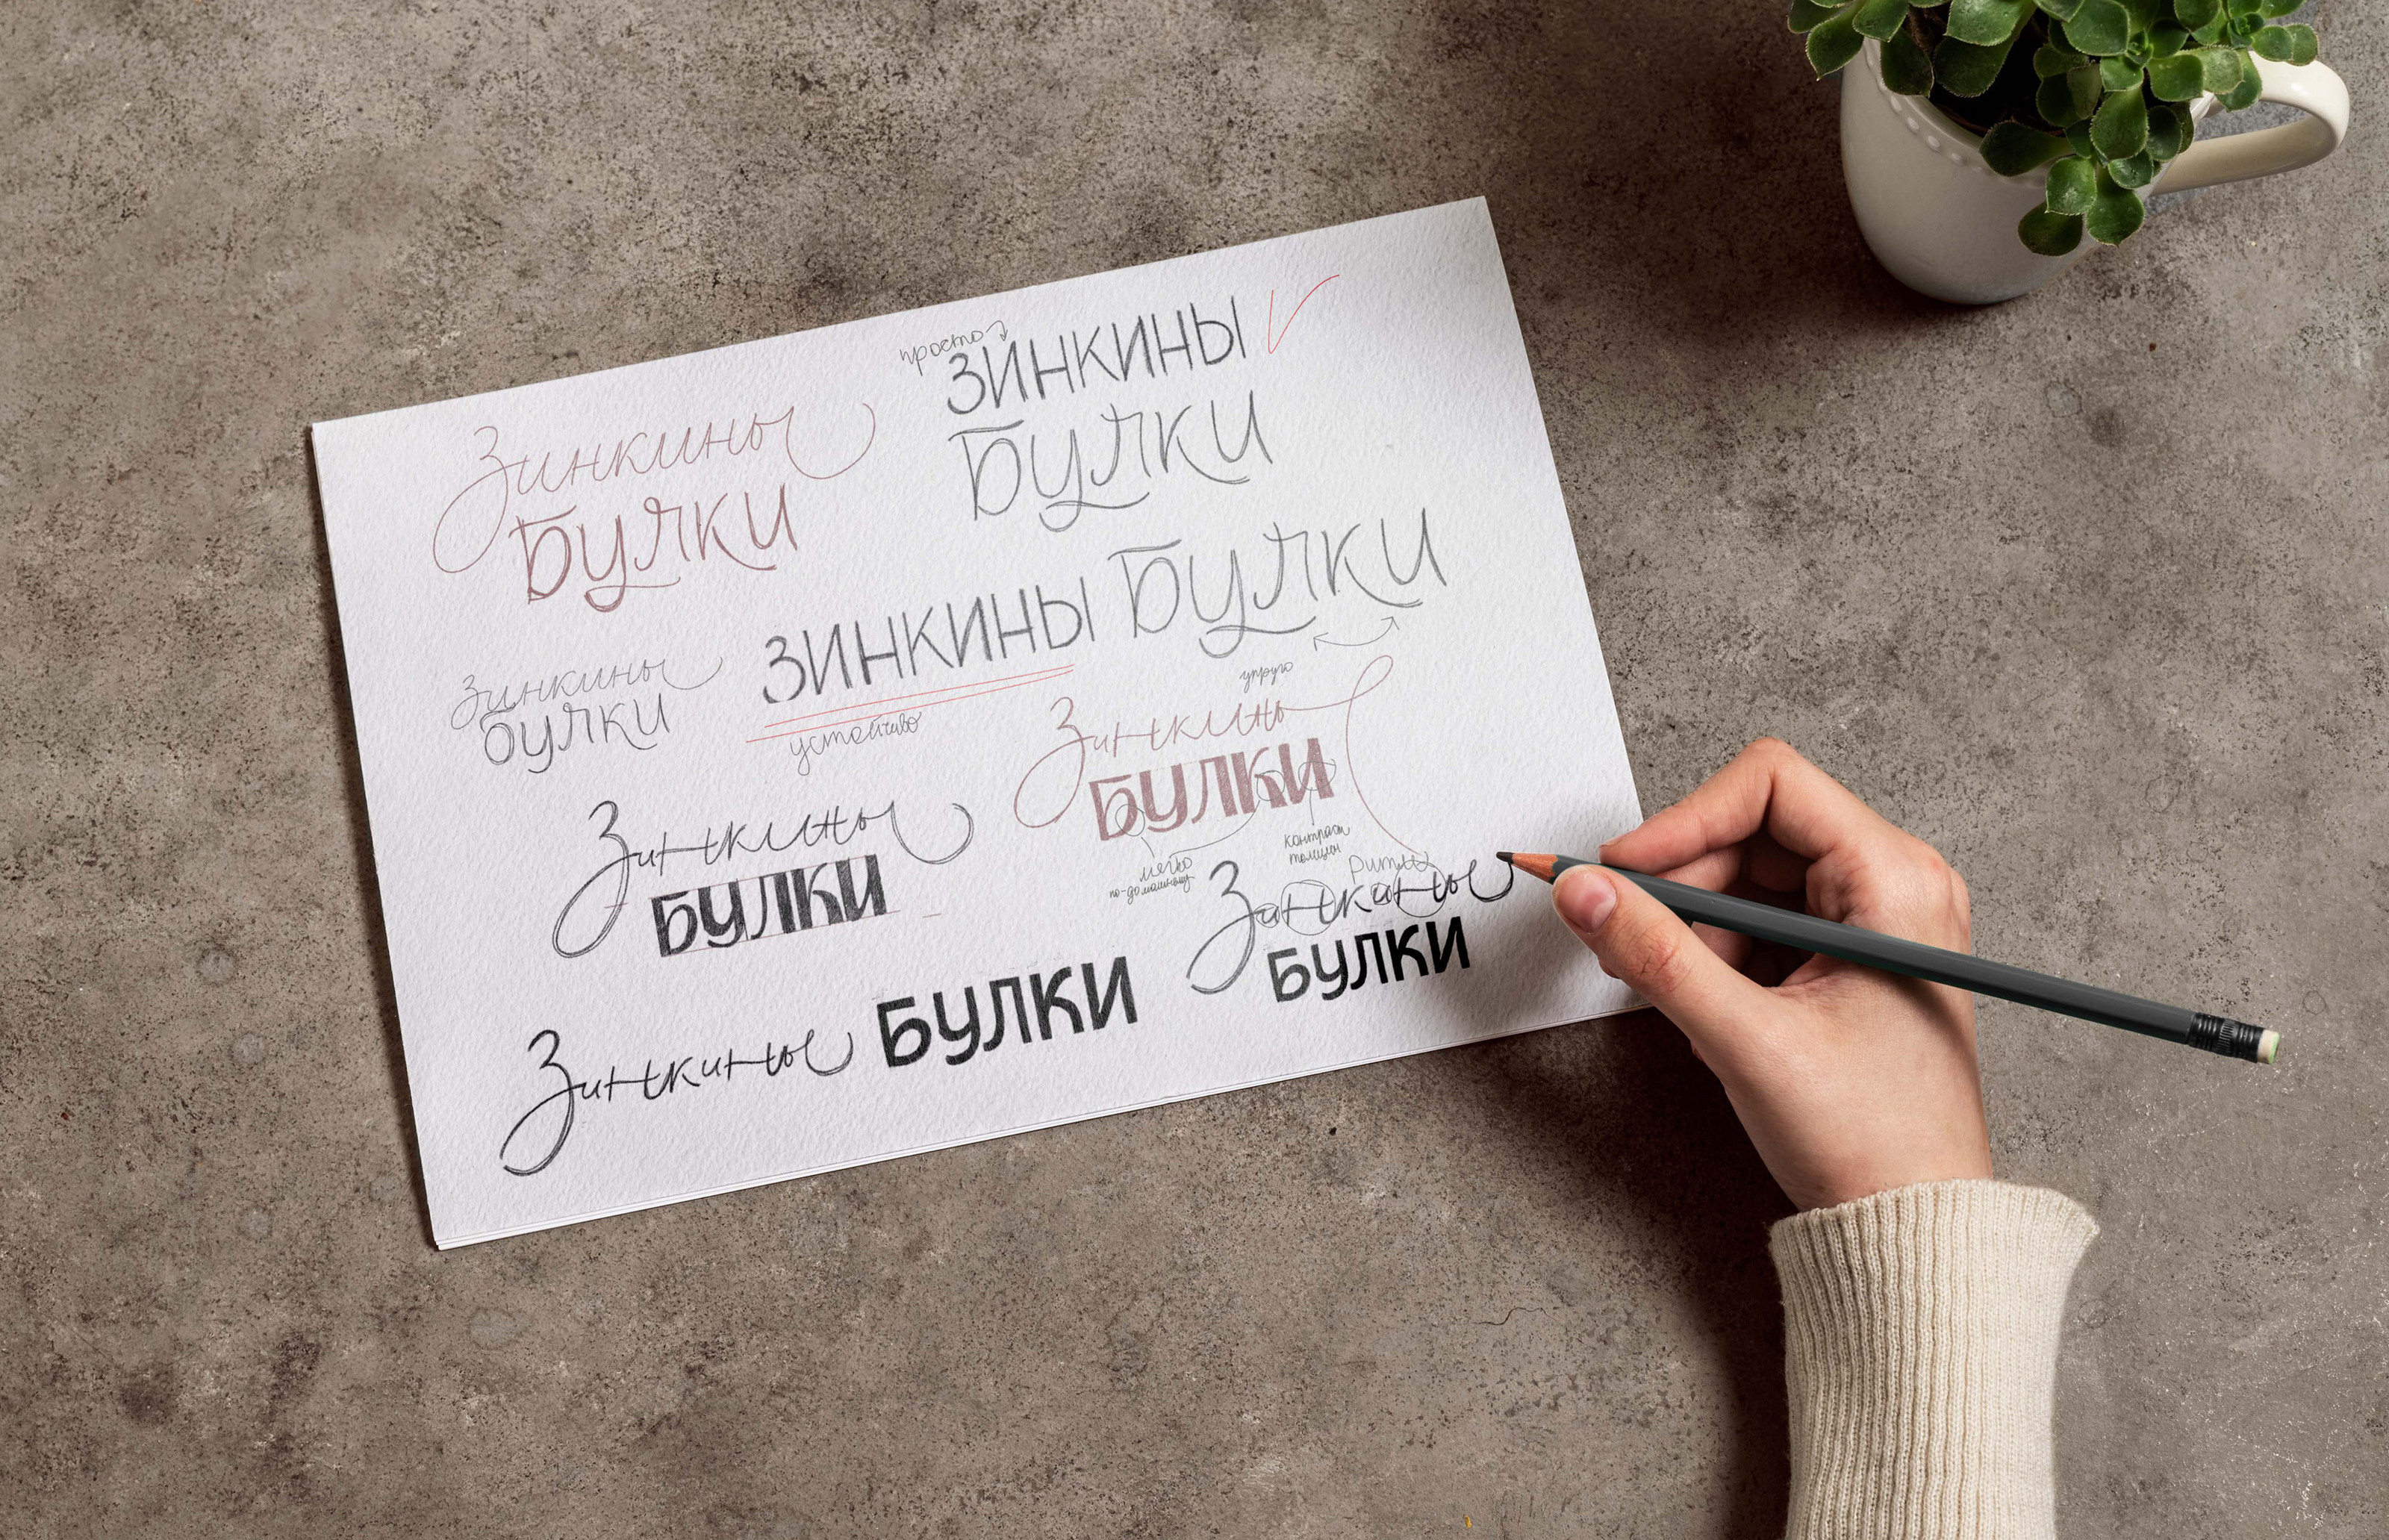 просто
ЗИНКИНЫ
БУЛКИ
Зинкины
БУЛКИ
ЗИНКИНЫ БУЛКИ
устойчиво
упруго
Зинкины
булки
Зинкины
БУЛКИ
мягко
по-домашнему
контраст
толщин
Ритм
Зинкины
БУЛКИ
Зинкины
БУЛКИ
Зинкины БУЛКИ